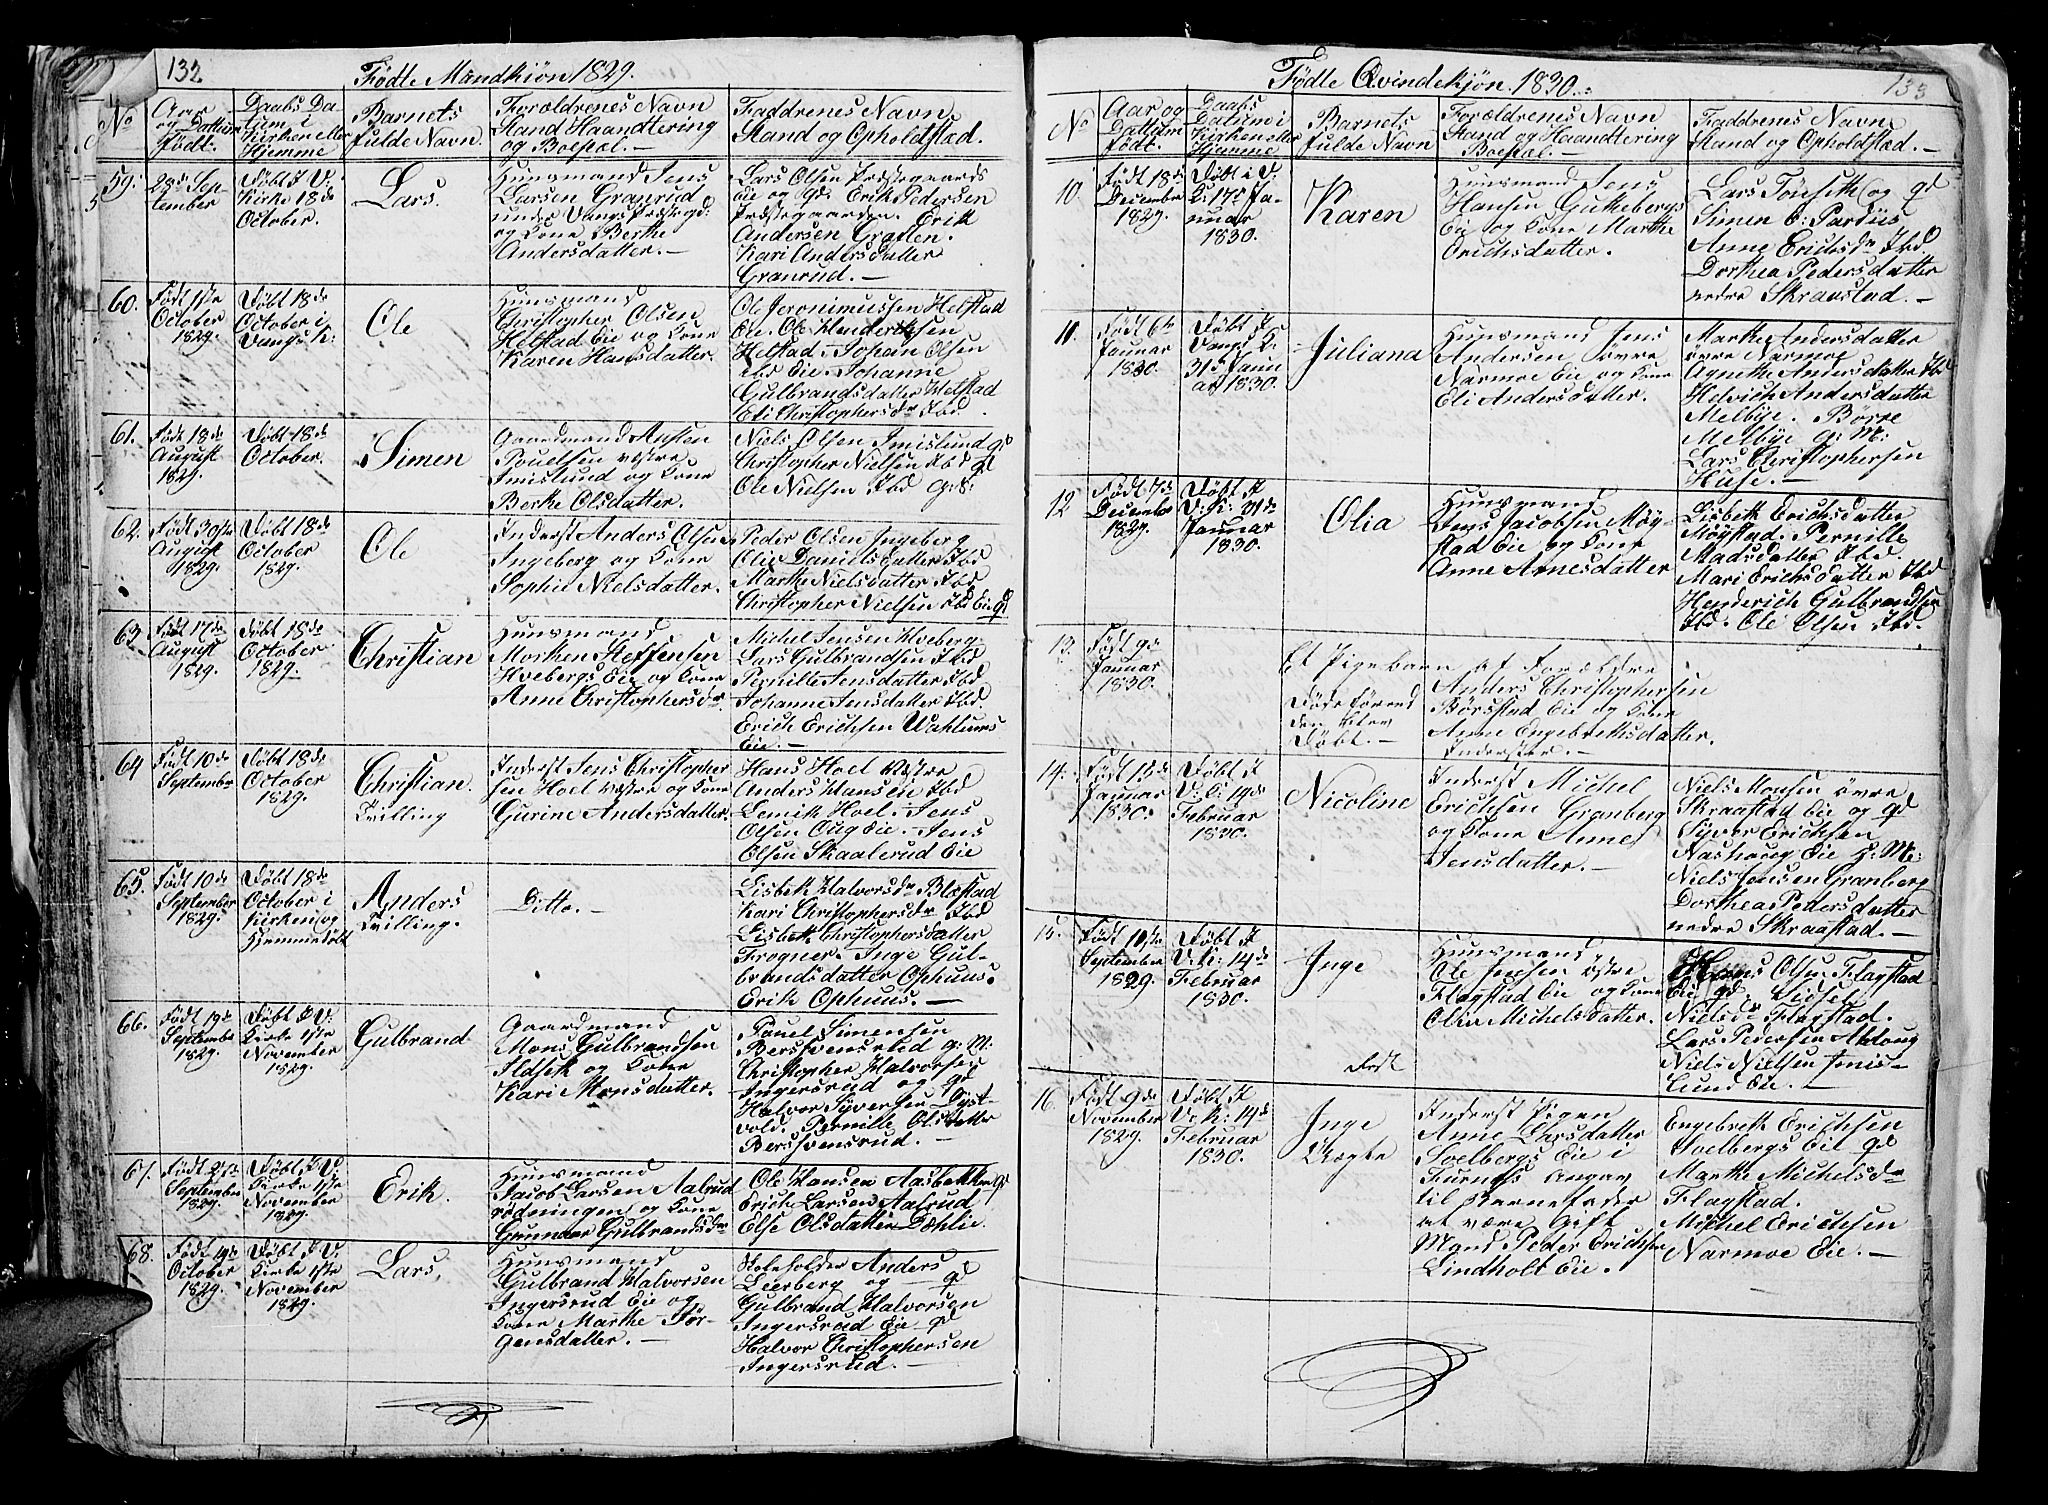 132
Fødte Mandkiøn 1829.
No
Aar og Dattum Født.
Daabs Datum i Kirken eller Hjemme
Barnets fulde Navn.
Forældrenes Navn Stand Haandtering og Boepæl. —
Faddrenes Navn Stand og Opholdstæd.
59.
28de September
Døbt I V. Kirke 18de October.
Lars.
Huusmand Jens
Larsen Granrud
under Vangs Præstegd:
og Kone Berthe
Andersdatter. —
Lars Olsen Præstegaards
Eie og Gd. Erik Pedersen
Præstegaarden. Erik
Andersen Graften.
Kari Andersdatter
Granrud. —
60.
Født 1ste October 1829.
Døbt 18de October i Vangs K:
Ole
Huusmand
Christopher Olsen
Helstad Eie og Kone
Karen Hansdatter.
Ole Jeronimussen Helstad
Eie. Ole Henderichsen
Helstad. Johan Olsen
ibd Eie. Johanne
Gulbrandsdatter Helstad
Eli Christophersdr Ibd.
61.
Født 18de August 1829.
Døbt 18de October.
Simen
Gaardmand Austen
Pouelsen vestre
Imislund og Kone
Berthe Olsdatter.
Niels Olsen Imislund gd
Christopher Nielsen Ibd gd
Ole Nielsen Ibd G: S:
62.
Født 30te August 1829.
Døbt 18de October 1829.
Ole
Inderst Anders Olsen
Ingeberg og Kone
Sophie Nielsdatter.
Peder Olsen Ingeberg
Olia Danielsdatter Ibd
Marthe Nielsdatter Ibd
Christopher Nielsen Ibd Eie gd
63.
Født 17de August 1829.
Døbt 18de October 1829.
Christian
Huusmand
Morthen Steffensen
Hvebergs Eie og Kone
Anne Christophersdr.
Michel Jensen Hveberg.
Lars Gulbrandsen Ibd
Pernille Jensdatter Ibd
Johanne Jensdatter Ibd.
Erich Erichsen Wahlums
Eie. —
64
Født 10de September
Døbt 18de October 1829.
Christian.
Tvilling
Inderst Jens Christopher
sen Hoel vestre og Kone
Gurine Andersdatter.
Hans Hoel Vestre
Anders Hansen Ibd
Lemik Hoel. Jens
Olsen Oug Eie. Jens
Olsen Skaalerud Eie
65.
Født 10de September 1829.
Døbt 18de October i Kirken og Hjemmedøbt
Anders
Tvilling.
Ditto. —
Lisbeth Halvorsdr Blæstad
Kari Christophersdr Ibd
Lisbeth Christophersdatter
Frogner. Inge Gul-
brandsdatter Ophuus.
Erik Ophuus. —
66.
Født 19de September 1829.
Døbt I V: Kirke 1ste November 1829.
Gulbrand
Gaardmand
Mons Gulbrandsen
Aldsek og Kone
Kari Monsdatter.
Pouel Simensen
Berssvensrud g: M:
Christopher Halvorsen
Ingersrud og gd
Halvor Siversen Dyst-
vold. Pernille Olsdatter
Berssvensrud. —
67.
Født September 1829.
Døbt I V: Kirke 1ste November 1829.
Erik.
Huusmand
Jacob Larsen Aalrud
rødningen og Kone
Gunnor Gulbrandsdr
Ole Hansen Aasbekken gd
Erich Larsen Aalrud
Else Olsdatter Dæhlie.
68.
Født October 1829.
Døbt I V: Kirke 1ste November 1829.
Lars,
Huusmand
Gulbrand Halvorsen
Ingersrud Eie og
Kone Marthe Jør-
gensdatter. —
Anders
Leerberg og — gd
Gulbrand Halvorsen
Ingersrud Eie — gd
Halvor Christophersen
Ingersrud. —
133
Fødte Qvindekjøn. 1830.
No
Aar og Dattum Født.
Daabs Datum i Kirken eller Hjemme
Barnets fulde Navn
Forældrenes Navn Stand og Haandtering Boepæl. —
Faddrenes Navn Stand og Opholdstæd. —
10.
Født 18de December 1829.
Døbt i V: K: 17de Januar 1830.
Karen
Huusmand Jens
Hansen Gukebergs
Eie og Kone Marthe
Erichsdatter.
Lars Tonseth og gd
Simen E: Pardiis
Anne Erichsdr Ibd
Dorthea Pedersdatter
nedre Skraastad. —
11.
Født 6te Januar 1830.
Døbt I Vangs K: 31te Januar 1830.
Juliana
Huusmand Jens
Andersen øvre
Narmoe Eie og Kone
Eli Andersdatter.
Marthe Andersdatter
øvre Narmoe
Agnethe Andersdatter Ibd
Helvich Andersdatter
Melbye. Børre
Melbye g: M:
Lars Christophersen
Huse. —
12
Født 7de December 1829.
Døbt I V: K: 31de Januar 1830.
Olia
Huusmand
Jens Jacobsen Møy-
stad Eie og Kone
Anne Arnesdatter
Lisbeth Erichsdatter
Møystad. Pernille
Madsdatter Ibd.
Mari Erichsdatter Ibd
Henderich Gulbrandsen
Ibd. Ole Olsen Ibd.
13.
Født 9de Januar 1830.
Et Pigebarn af Forældre
Døde førend den blev Døbt. —
Anders Christophersen
Børstad Eie og Kone
Anne Engebrethsdatter.
Inderster. —
14.
Født 13de Januar 1830.
Døbt I V: K: 14de Februar 1830.
Nicoline
Inderst Michel
Erichsen Granberg
og Kone Anne
Jensdatter. —
Niels Monsen øvre
Skraastad Eie og gd
Syver Erichsen
Nashoug Eie H: M:
Niels Jensen Granberg
Dorthea Pedersdatter
nedre Skraastad. —
15.
Født September 1829.
Døbt I V: K: 14de Februar 1830.
Inge
Huusmand
Ole Jensen østre
Flagstad Eie og Kone
Olia Michelsdatter.
Hans Olsen Flagstad
Eie gd. Lisbet
Nielsdr Flagstad.
Lars Pedersen
Niels Nielsen Imis-
lund Eie. —
16.
Født 9de November 1829.
Døbt I V: K: 14de Februar 1830.
Inge
Uægte
Inderst Pigen
Anne Larsdatter
Soelbergs Eie i
Furnæs Angav
til Barnefader
at være Gift
Mand Peder Erichsen
Lindholt Eie.
Engebreth Erichsen
Soelbergs Eie gd
Marthe Michelsdr
Flagstad.
Michel Erichsen
Narmoe Eie. —